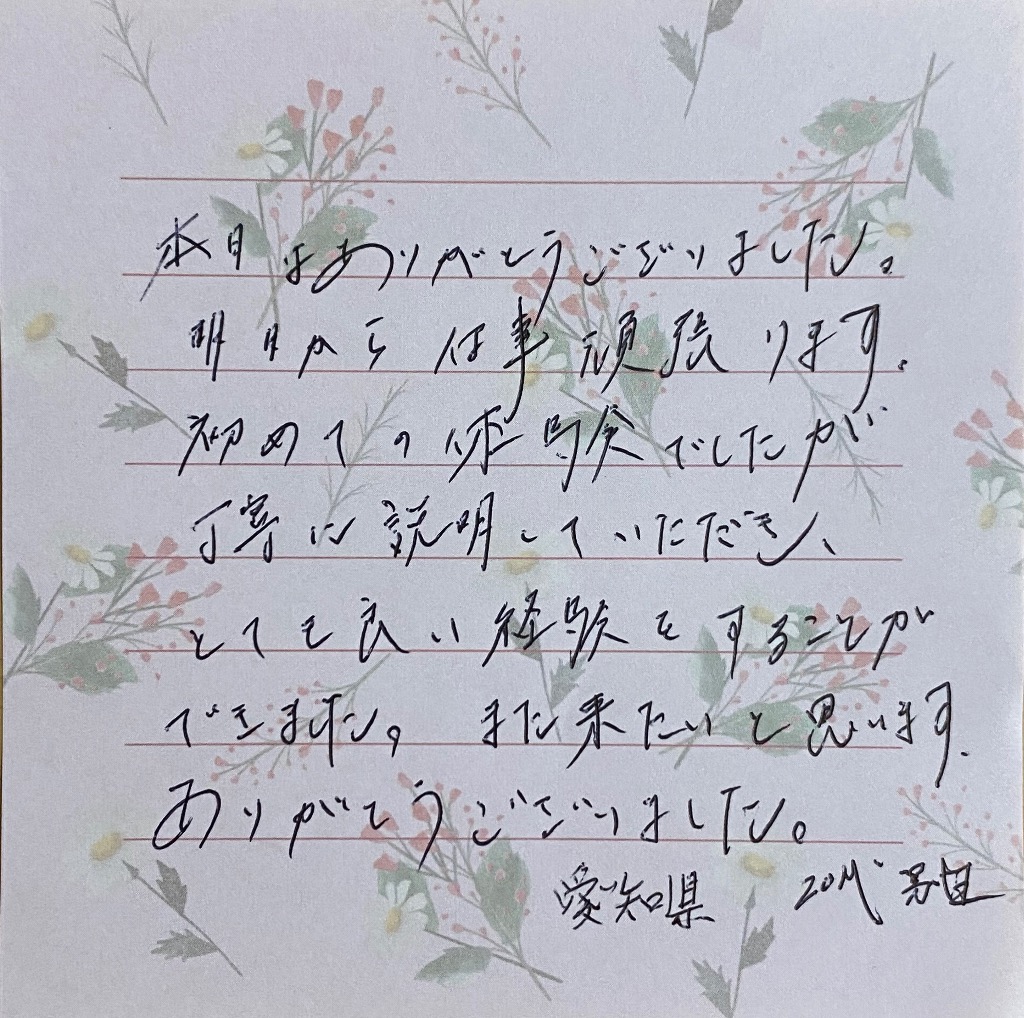 本日はありがとうございました。
明日から仕事頑張ります。
初めての体験でしたが
丁寧に説明していただき、
とても良い経験をすることが
できました。また来たいと思います.
ありがとうございました。
愛知県 20代 男性